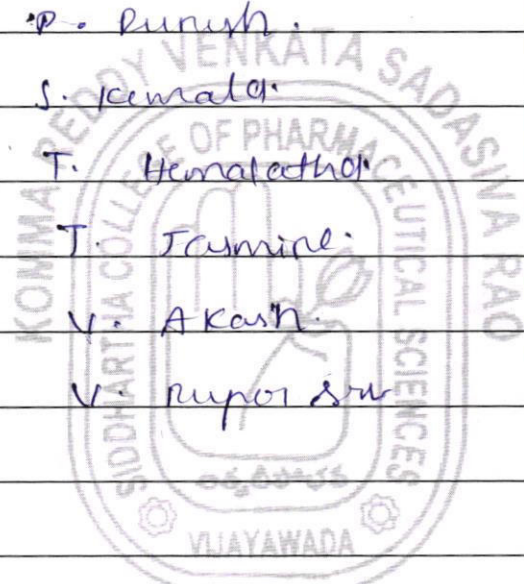 P. Punish.
S. Kemala.
T. Hemalatha.
T. Jasmine.
V. Akash.
V. Rupa Sri
KOMMA REDDY VENKATA SADASIVA RAO
SIDDHARTHA COLLEGE OF PHARMACEUTICAL SCIENCES
VIJAYAWADA